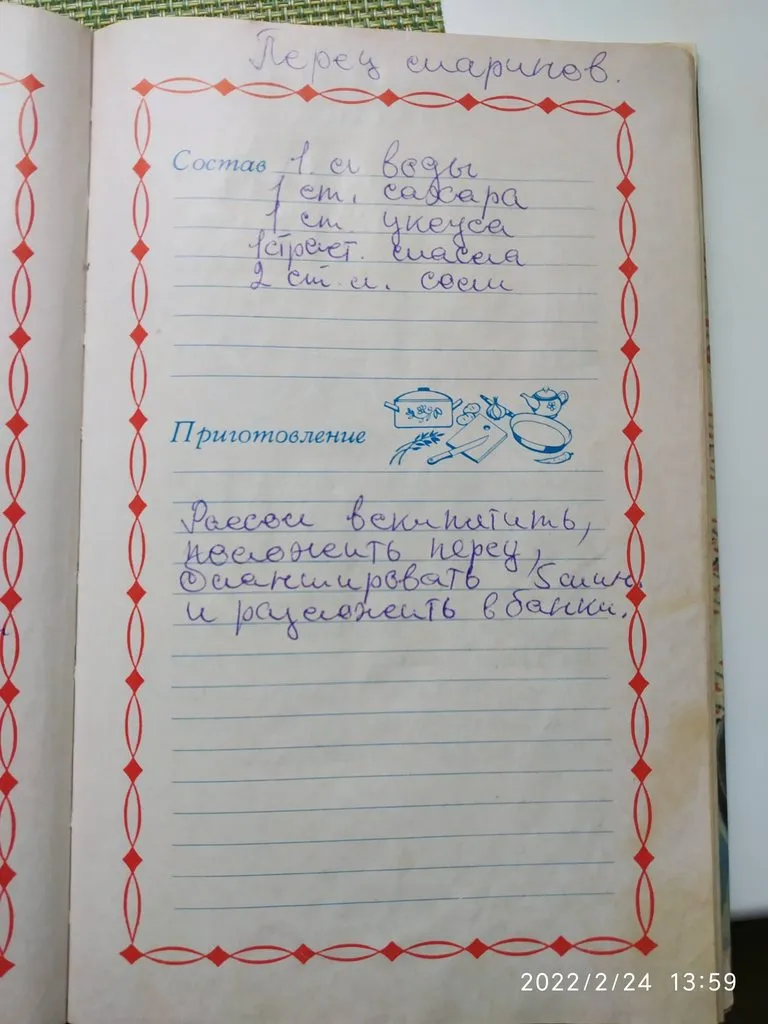 Перец маринов.
Состав 1 л воды
1 ст. сахара
1 ст. уксуса
1 ст. масла
2 ст. л. соли
Приготовление
Рассол вскипятить,
положить перец,
бланшировать 5 мин.
и разложить в банки.
2022/2/24 13:59